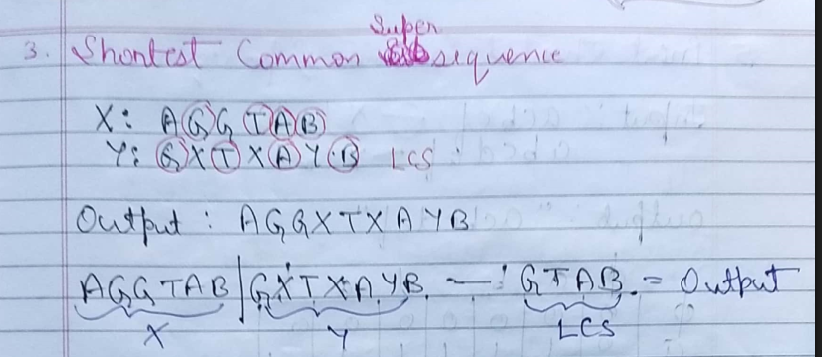 3. Shortest Common Supersequence
X: AGGTAB
Y: GXTXAYB LCS
Output: AGGXTXAYB
AGGTAB | GXTXAYB — GTAB = Output
X Y LCS